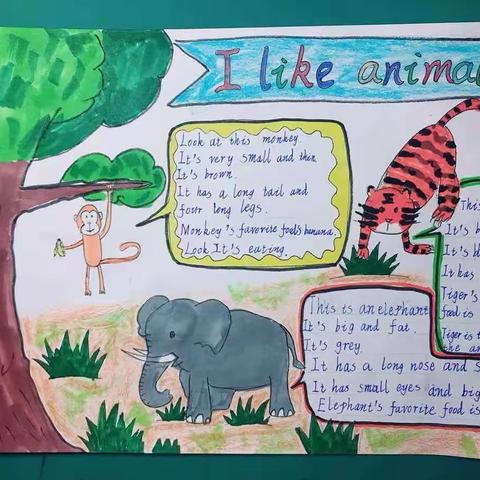 I like animal
Look at this monkey.
It's very small and thin.
It's brown.
It has a long tail and
four long legs.
Monkey's favorite food's banana.
Look It's eating.
This is an elephant
It's big and fat.
It's grey.
It has a long nose and s
It has small eyes and big
Elephant's favorite food is
This
It's b
It's
It has
Tiger's
food is
Tiger is t
the an